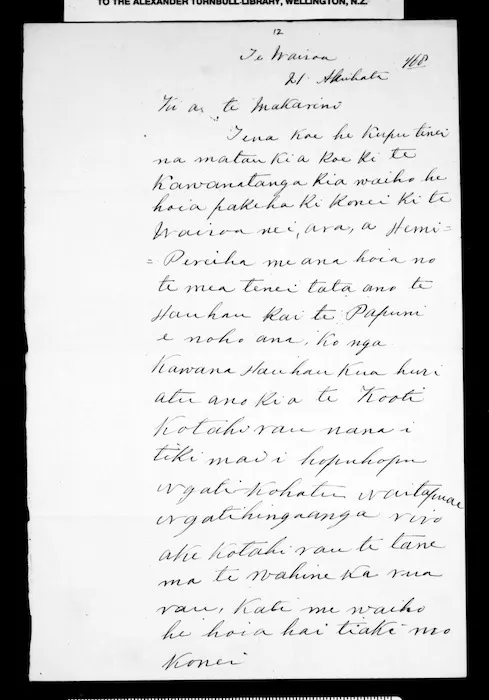 TO THE ALEXANDER TURNBULL LIBRARY, WELLINGTON, N.Z.
12
Te Wairoa
468
21 Akuhata
Kia te Makarini
Tena koe he kupu tenei
na matau ki a koe ki te
Kawanatanga kia waiho he
hoia pakeha ki konei ki te
Wairoa nei, ara, a Hemi=
= Pereiha me ana hoia no
te mea tenei tata ano te
Hauhau kai te Papuni
e noho ana, ko nga
Kawana Hauhau kua huri
atu ano ki a te Kooti
Kotahi rau nana i
tiki mai i hopuhopu
Ngati Kohatu
Ngatihingaanga riro
ake kotahi rau te tane
ma te wahine ka rua
rau, Kati me waiho
he hoia hai tiaki mo
konei